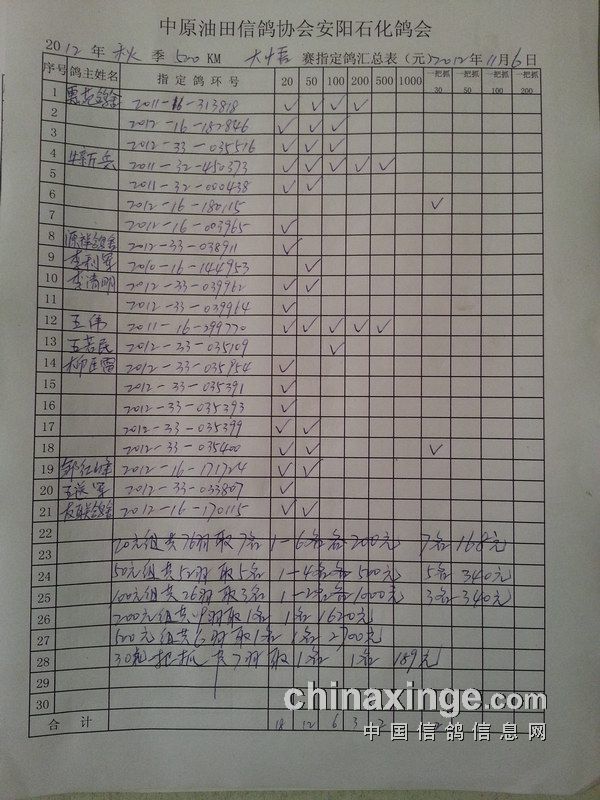 中原油田信鸽协会安阳石化鸽会
2012年 秋 季 520 KM 大悟 赛指定鸽汇总表(元)2012年11月6日
序号 鸽主姓名 指定鸽环号 20 50 100 200 500 1000 一把抓30 一把抓50 一把抓100 一把抓200
1 2011-16-313818 ✓ ✓ ✓ ✓
2 2012-16-182846 ✓ ✓ ✓
3 2012-33-035516 ✓ ✓ ✓
4 牛新兵 2011-32-450373 ✓ ✓ ✓ ✓ ✓
5 2011-32-000438 ✓ ✓
6 2012-16-180115 ✓
7 2012-16-003965 ✓
8 源祥鸽舍 2012-33-038911 ✓
9 李利军 2010-16-144953 ✓
10 李清明 2012-33-039962 ✓ ✓
11 2012-33-039964 ✓
12 王伟 2011-16-299770 ✓ ✓ ✓ ✓ ✓
13 王若民 2012-33-035109 ✓
14 柳臣雷 2012-33-035954 ✓
15 2012-33-035391 ✓
16 2012-33-035393 ✓
17 2012-33-035399 ✓ ✓
18 2012-33-035400 ✓ ✓ ✓
19 邹红峰 2012-16-171724 ✓ ✓
20 2012-33-033807 ✓
21 友联鸽舍 2012-16-170115 ✓ ✓
22
23 20元组共76羽取7名 1-6名各200元 7名168元
24 50元组共52羽取5名 1-4名各500元 5名340元
25 100元组共26羽取3名 1-2名各1000元 3名340元
26 200元组共9羽取1名 1名1620元
27 500元组共6羽取1名 1名2700元
28 30元一把抓共7羽取1名 1名189元
29
30
合计 18 12 6 3 2 2
chinaxinge.com
中国信鸽信息网